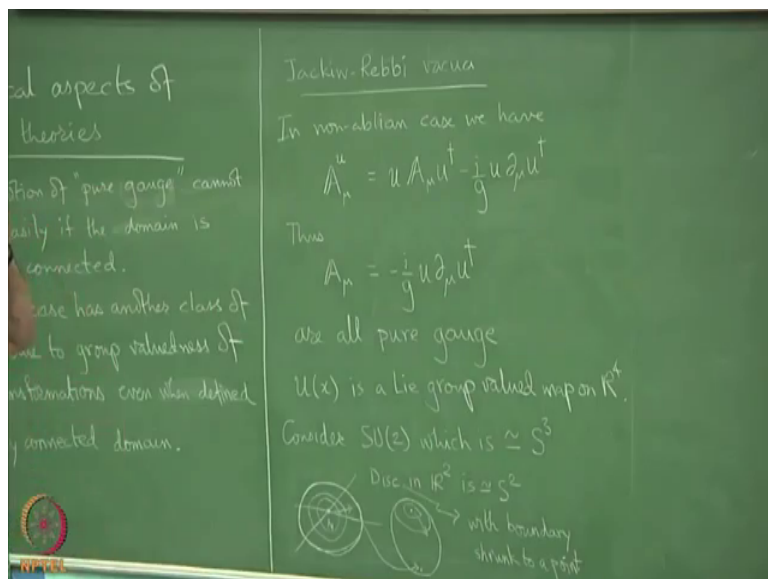 cal aspects of
theories
tion of "pure gauge" cannot
asily if the domain is
connected.
case has another class of
ue to group valuedness of
nsformations even when defined
y connected domain.
Jackiw-Rebbi vacua
In non-ablian case we have
A^u_μ = u A_μ u† - i/g u ∂_μ u†
Thus
A_μ = - i/g u ∂_μ u†
are all pure gauge
U(x) is a Lie group valued map on ℝ⁴.
Consider SU(2) which is ≃ S³
Disc in ℝ² is ≃ S²
with boundary
shrunk to a point
NPTEL